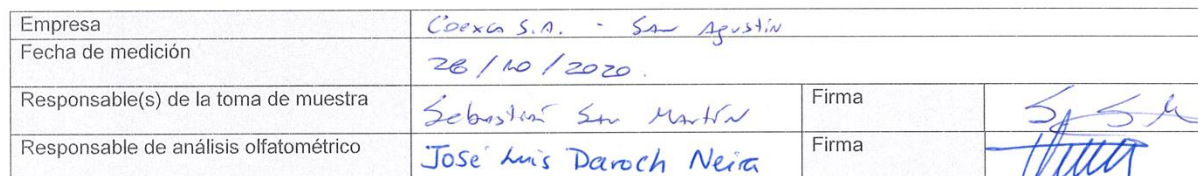 Empresa Coexca S.A. - San Agustín
Fecha de medición 28/10/2020.
Responsable(s) de la toma de muestra Sebastián San Martín Firma
Responsable de análisis olfatométrico José Luis Daroch Neira Firma